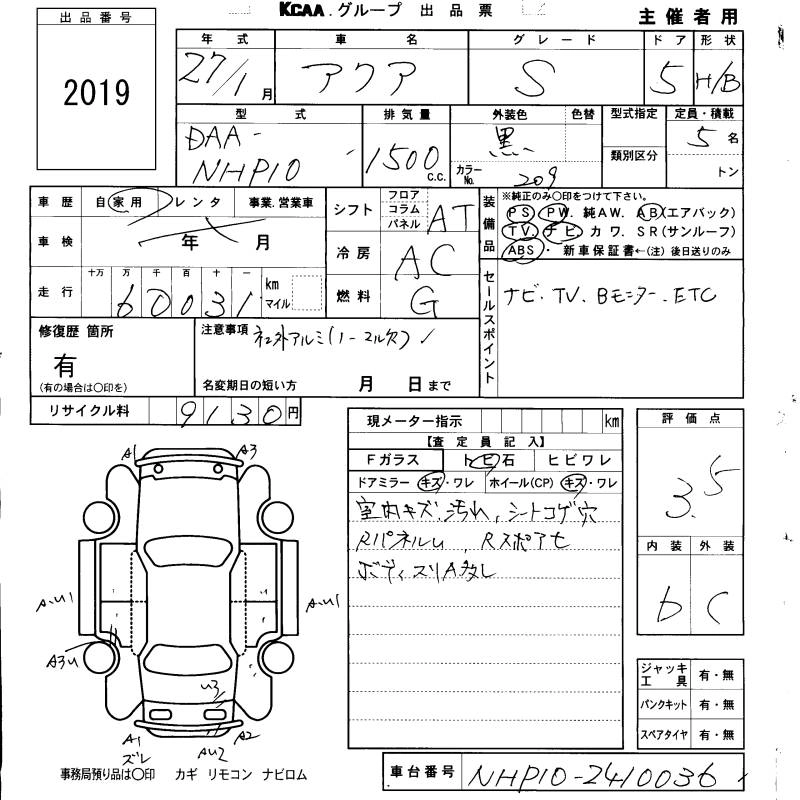 KCAA.グループ 出品票
主催者用
出品番号
2019
年式 車名 グレード ドア 形状
27/1月 アクア S 5 H/B
型式 排気量 外装色 色替 型式指定 定員・積載
DAA-
NHP10 1500 C.C. 黒 カラーNo. 209 類別区分 5名
トン
車歴 自家用 レンタ 事業.営業車
車検 年 月
走行 十万 万 千 百 十 一
60031 km マイル
シフト フロア コラム パネル AT
冷房 AC
燃料 G
装備品
※純正のみ〇印をつけて下さい。
PS PW 純AW. AB(エアバック)
TV. ナビ. カワ. SR(サンルーフ)
ABS・ 新車保証書←(注)後日送りのみ
セールスポイント
ナビ・TV. Bモニター. ETC
修復歴 箇所
有
(有の場合は〇印を)
注意事項 社外アルミ(1-マル欠)
名変期日の短い方 月 日まで
リサイクル料 9130円
現メーター指示 km
【査定員記入】
Fガラス トビ石 ヒビワレ
ドアミラー キズ・ワレ ホイール(CP) キズ・ワレ
室内キズ. 汚れ, シートコゲ穴
RパネルU , Rスポアセ
ボディスリA多し
評価点
3.5
内装 外装
b C
ジャッキ工具 有・無
パンクキット 有・無
スペアタイヤ 有・無
A1 A3
A.U1 A.U1
A3U
U3
A1 ズレ AU2 A2
事務局預り品は〇印 カギ リモコン ナビロム
車台番号 NHP10-2410036